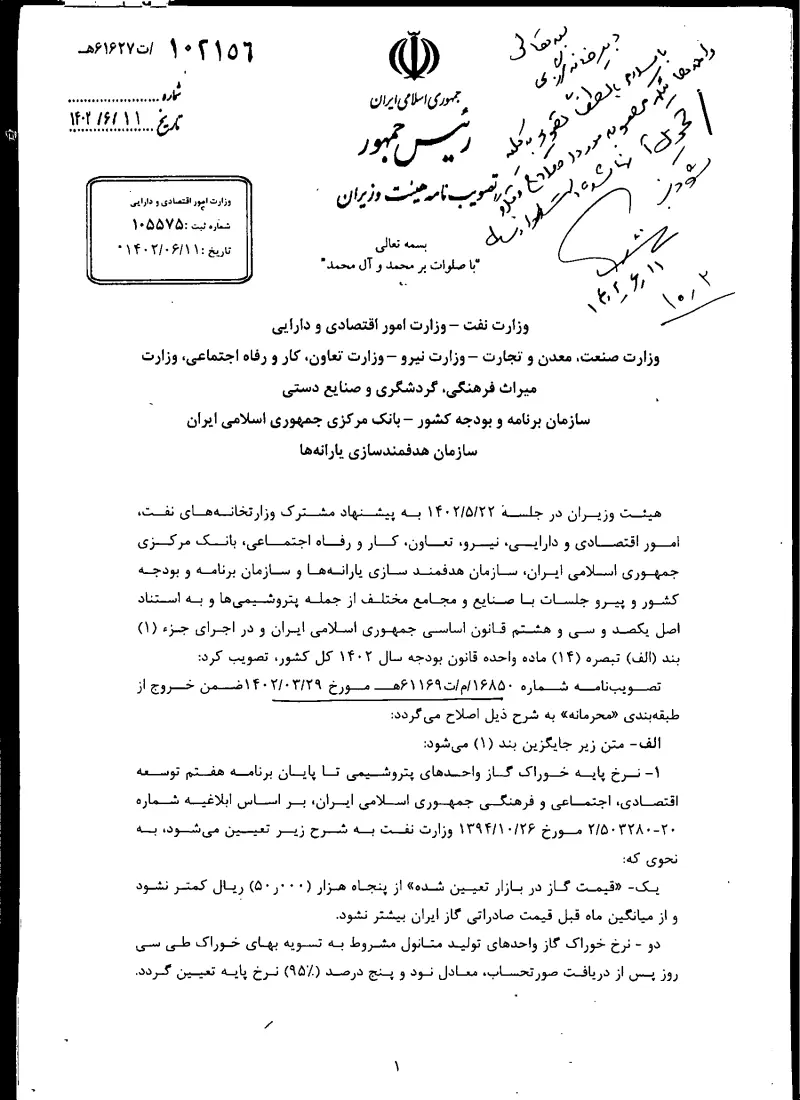 ۱۰۲۱۵۶ /ت۶۱۶۲۷هـ
شماره
تاریخ ۱۴۰۲/۶/۱۱
جمهوری اسلامی ایران
رئیس جمهور
تصویب نامه هیئت وزیران
بسمه تعالی
"با صلوات بر محمد و آل محمد"
وزارت امور اقتصادی و دارایی
شماره ثبت : ۱۰۵۵۷۵
تاریخ : ۱۴۰۲/۰۶/۱۱
بسمه تعالی
۱۴۰۲٫۶٫۱۱
۱۰٫۲
وزارت نفت – وزارت امور اقتصادی و دارایی
وزارت صنعت، معدن و تجارت – وزارت نیرو – وزارت تعاون، کار و رفاه اجتماعی، وزارت
میراث فرهنگی، گردشگری و صنایع دستی
سازمان برنامه و بودجه کشور – بانک مرکزی جمهوری اسلامی ایران
سازمان هدفمندسازی یارانه‌ها
هیئت وزیران در جلسه ۱۴۰۲/۵/۲۲ به پیشنهاد مشترک وزارتخانه‌های نفت،
امور اقتصادی و دارایی، نیرو، تعاون، کار و رفاه اجتماعی، بانک مرکزی
جمهوری اسلامی ایران، سازمان هدفمند سازی یارانه‌ها و سازمان برنامه و بودجه
کشور و پیرو جلسات با صنایع و مجامع مختلف از جمله پتروشیمی‌ها و به استناد
اصل یکصد و سی و هشتم قانون اساسی جمهوری اسلامی ایران و در اجرای جزء (۱)
بند (الف) تبصره (۱۴) ماده واحده قانون بودجه سال ۱۴۰۲ کل کشور، تصویب کرد:
تصویب‌نامه شماره ۱۶۸۵۰/م/ت۶۱۱۶۹هـ مورخ ۱۴۰۲/۰۳/۲۹ ضمن خروج از
طبقه‌بندی «محرمانه» به شرح ذیل اصلاح می‌گردد:
الف- متن زیر جایگزین بند (۱) می‌شود:
۱- نرخ پایه خوراک گاز واحدهای پتروشیمی تا پایان برنامه هفتم توسعه
اقتصادی، اجتماعی و فرهنگی جمهوری اسلامی ایران، بر اساس ابلاغیه شماره
۲۰-۲/۵۰۳۲۸۰ مورخ ۱۳۹۴/۱۰/۲۶ وزارت نفت به شرح زیر تعیین می‌شود، به
نحوی که:
یک- «قیمت گاز در بازار تعیین شده» از پنجاه هزار (۵۰٫۰۰۰) ریال کمتر نشود
و از میانگین ماه قبل قیمت صادراتی گاز ایران بیشتر نشود.
دو - نرخ خوراک گاز واحدهای تولید متانول مشروط به تسویه بهای خوراک طی سی
روز پس از دریافت صورتحساب، معادل نود و پنج درصد (۹۵٪) نرخ پایه تعیین گردد.
۱